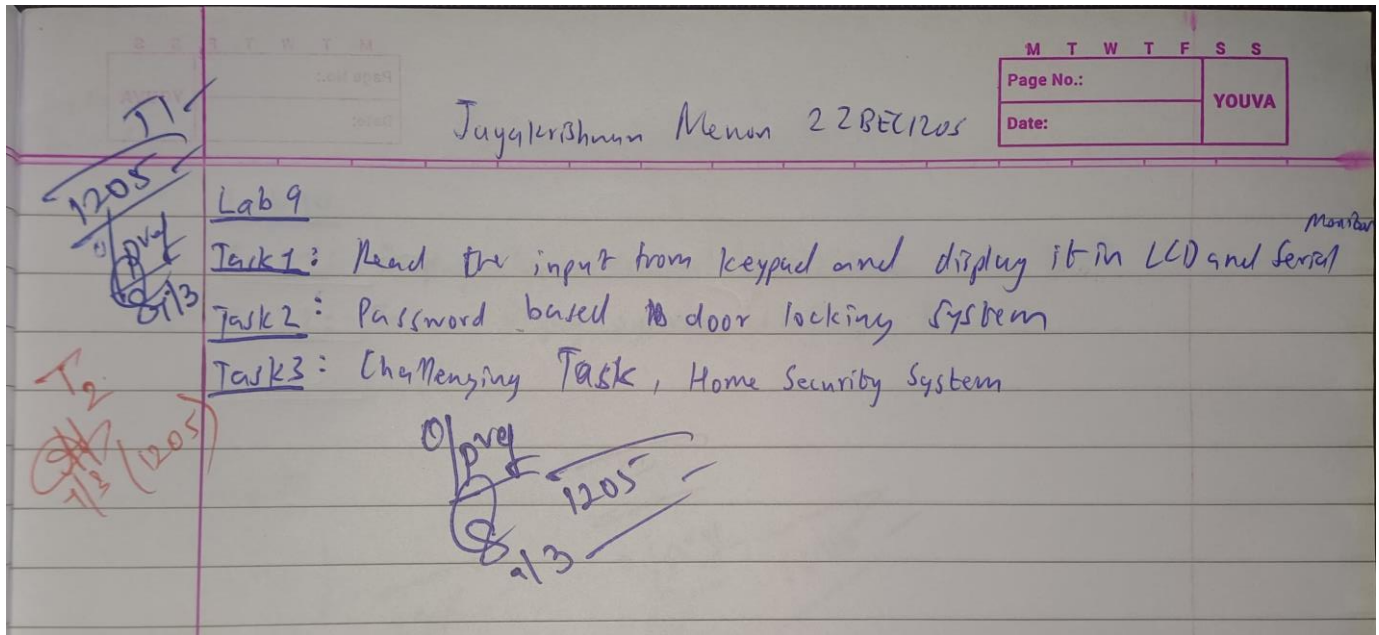 M T W T F S S
Page No.:
YOUVA
Date:
Jayakrishnan Menon 22BEC1205
T1
1205
Lab 9
Monitor
Task1: Read the input from keypad and display it in LCD and Serial
Task2: Password based door locking System
Task3: Challenging Task, Home Security System
T2
7/3 (1205)
1205